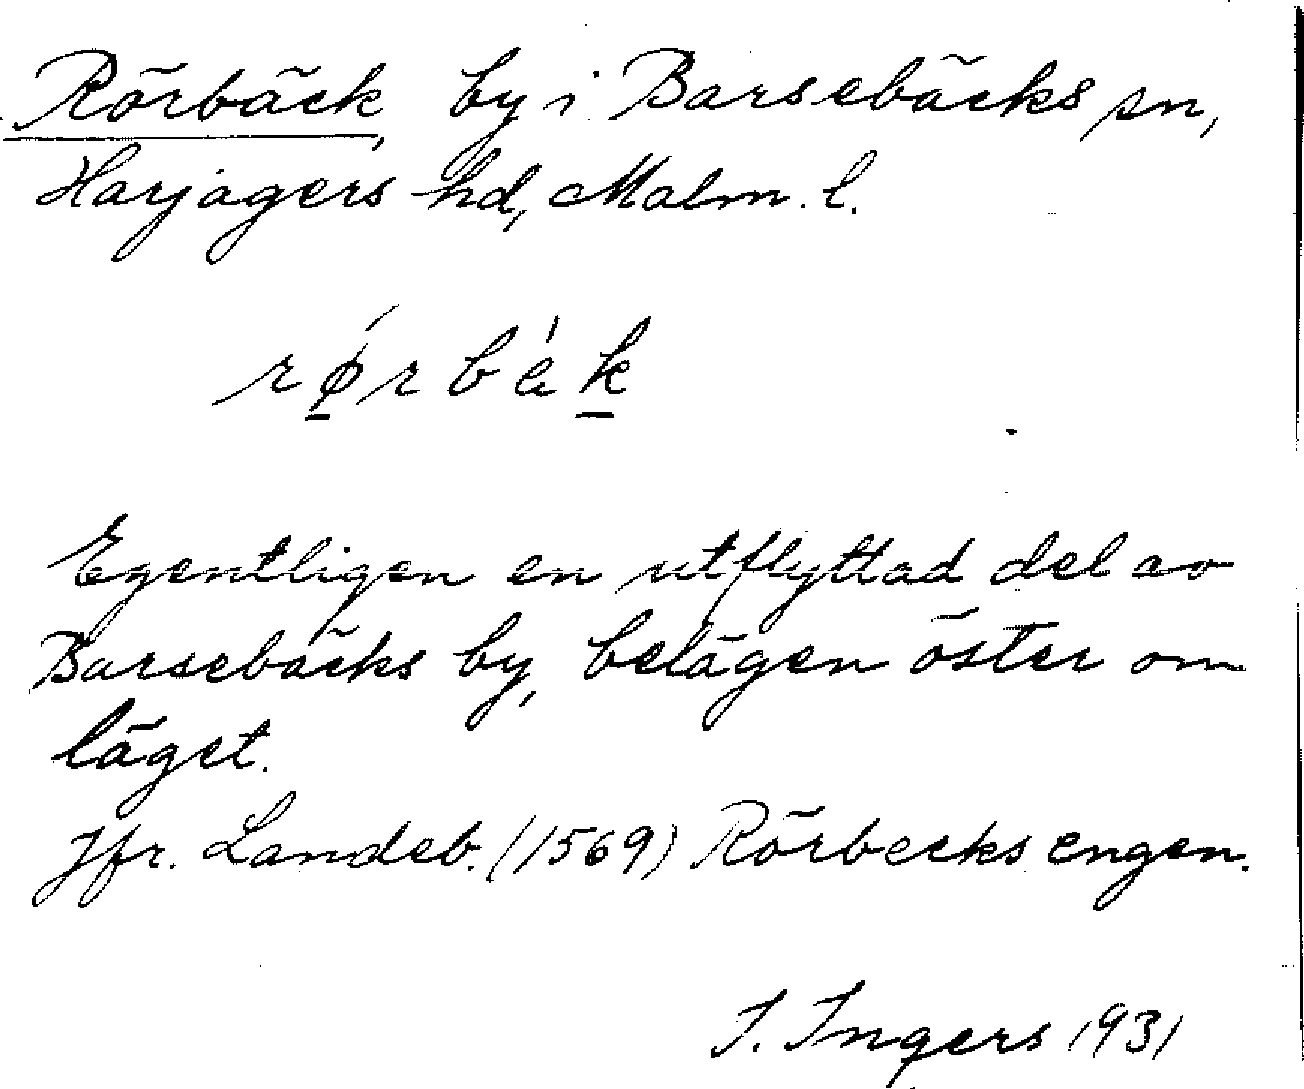 Rörbäck, by i Barsebäcks sn,
Harjagers hd, Malm. l.
rǿrbák
Egentligen en utflyttad del av
Barsebäcks by, belägen öster om
läget.
Jfr. Landeb. (1569) Rörbecks engen.
I. Ingers 1931